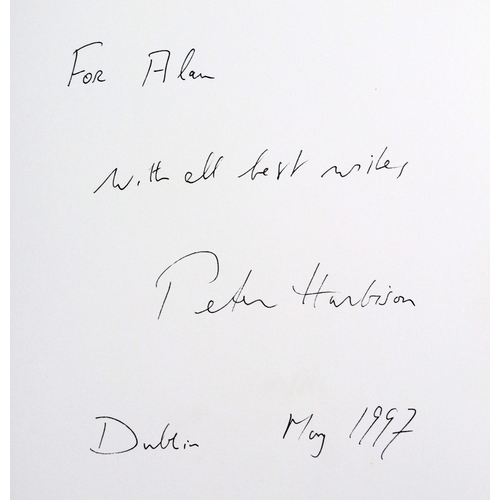 For Alan
with all best wishes,
Peter Harbison
Dublin May 1997